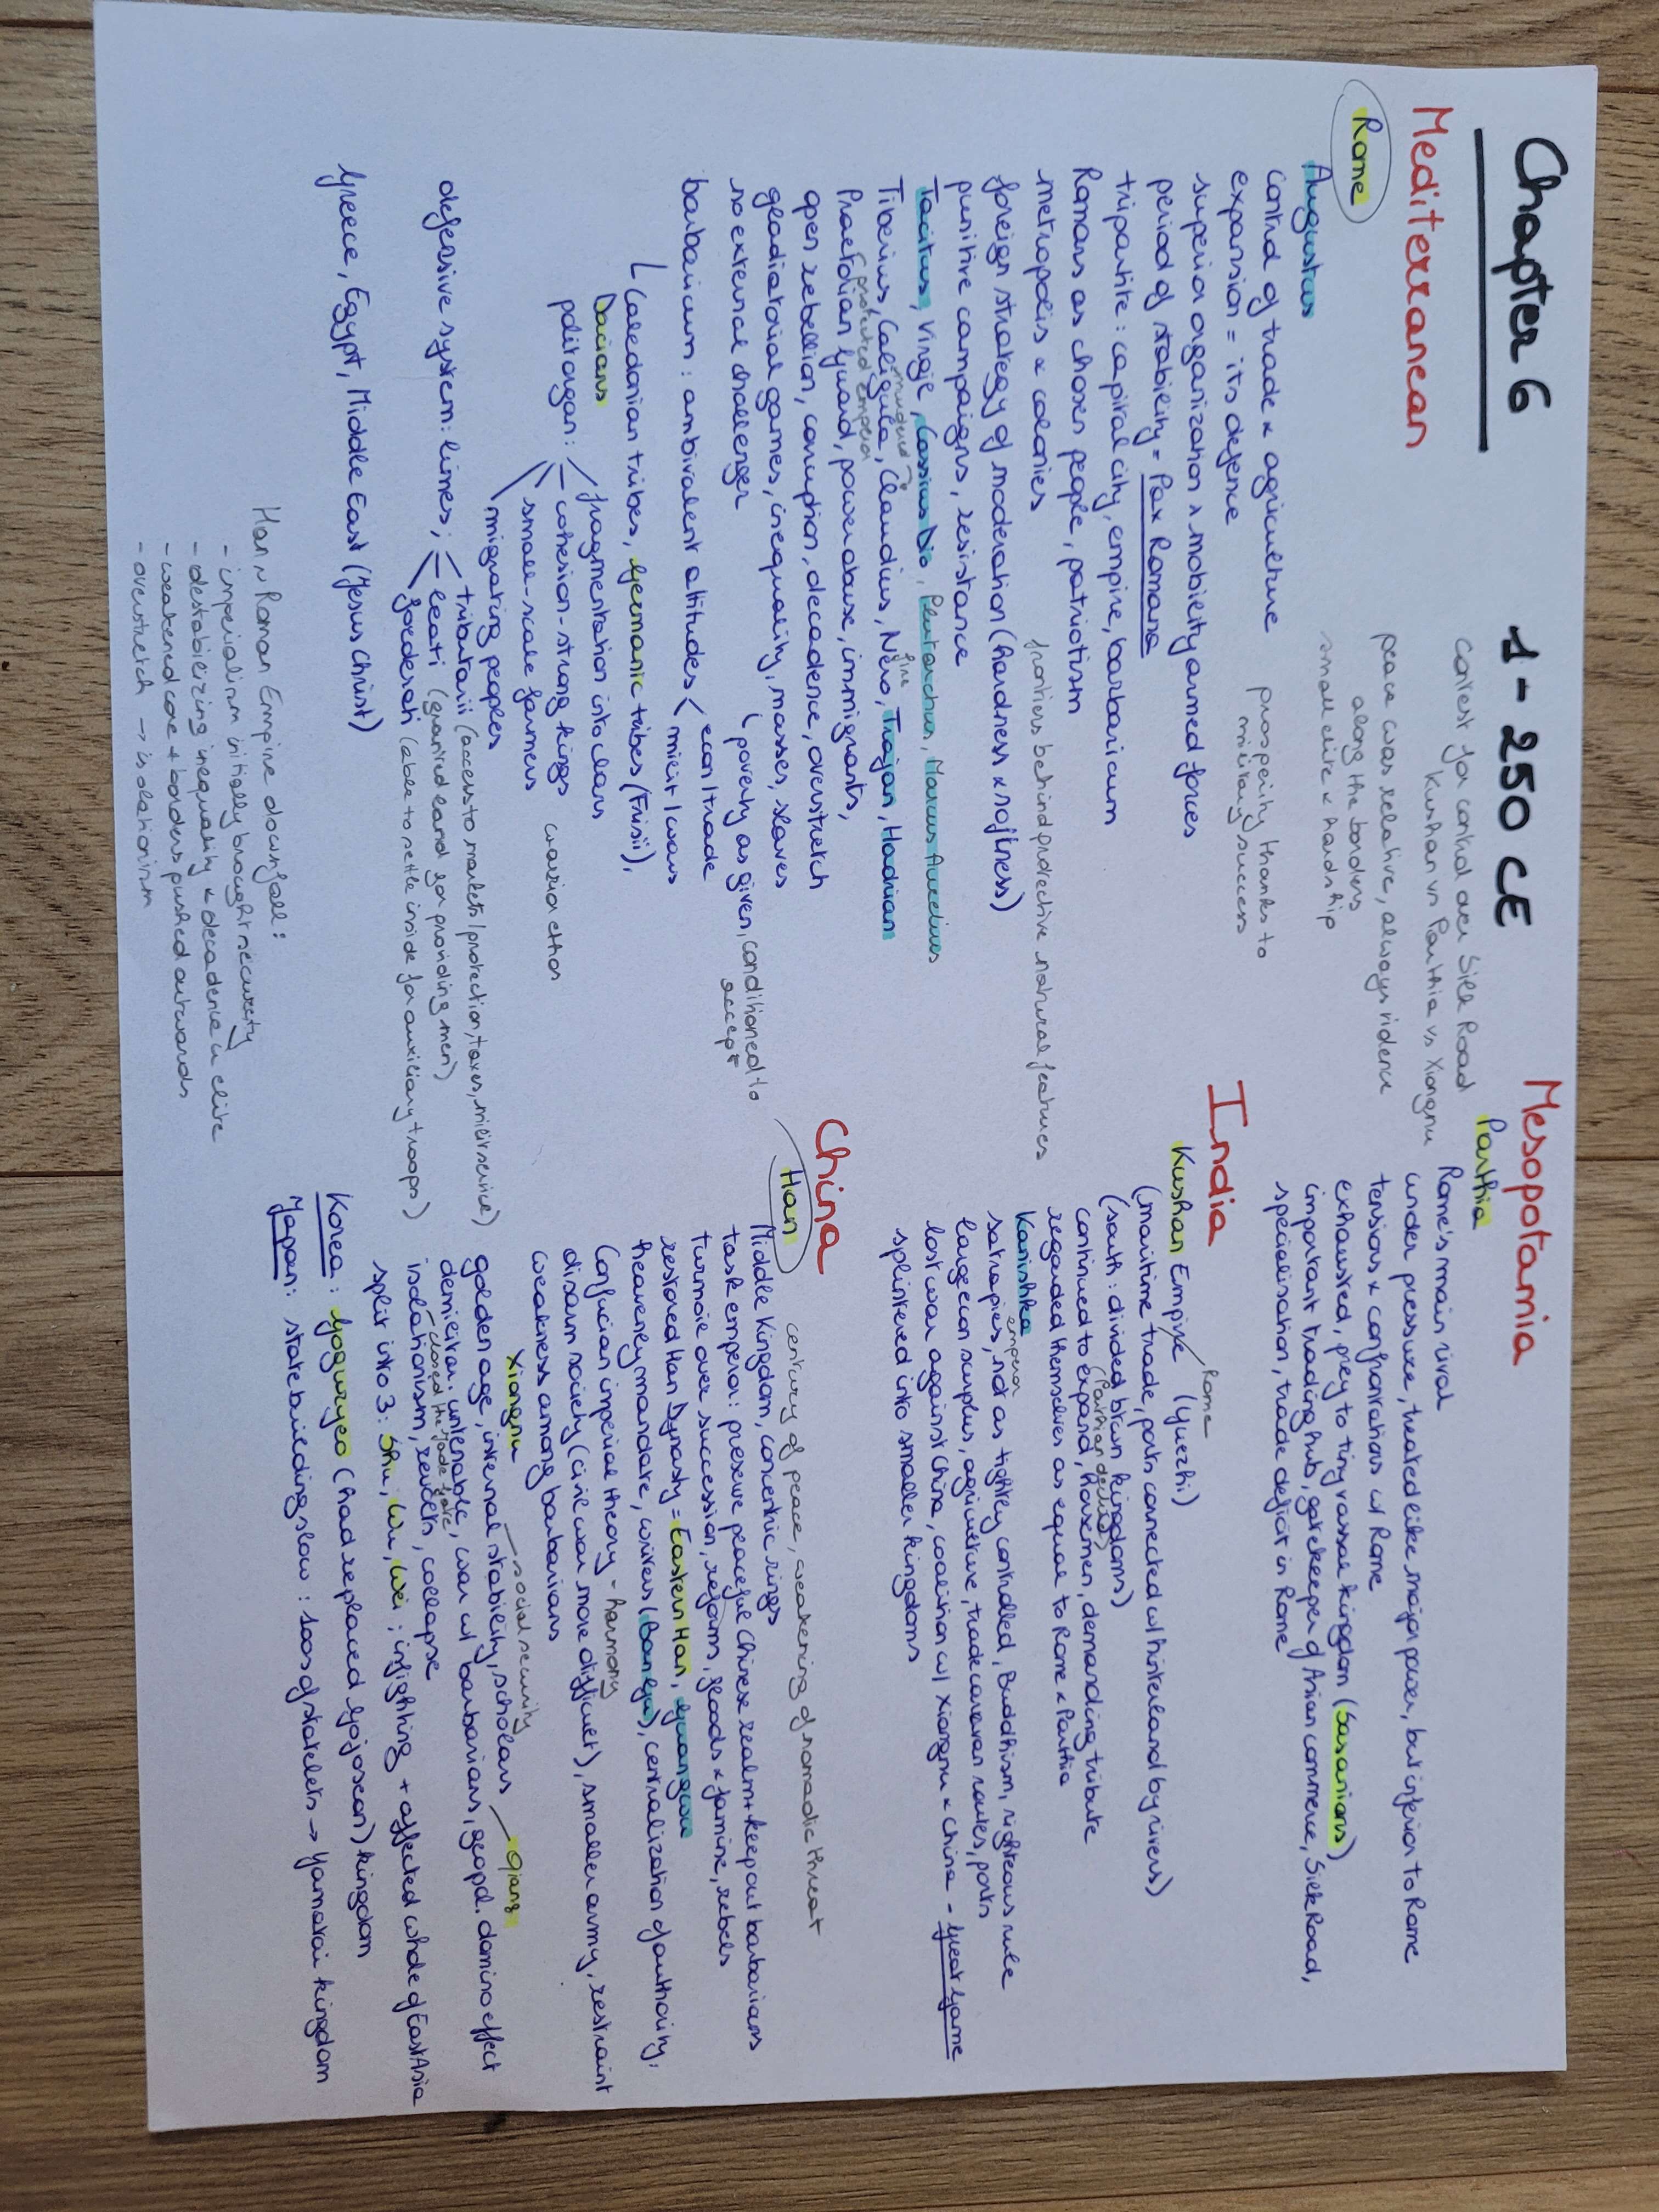 Chapter 6
1 - 250 CE
contest for control over Silk Road
Kushan vs Parthia vs Xiongnu
peace was relative, always violence
along the borders
small elite & hardship
Mediterranean
Rome
Augustus
control of trade & agriculture
expansion = its defence
prosperity thanks to
military success
superior organization & mobility armed forces
period of stability = Pax Romana
tripartite: capital city, empire, barbaricum
Romans as chosen people, patriotism
metropolis & colonies
frontiers behind protective natural features
foreign strategy of moderation (hardness & softness)
punitive campaigns, resistance
Tacitus, Virgie, Cassius Dio, Plutarchus, Marcus Aurelius
murdered
fire
Tiberius, Caligula, Claudius, Nero, Trajan, Hadrian
protected emperor
Praetorian Guard, power abuse, immigrants,
open rebellion, corruption, decadence, overstretch
gladiatorial games, inequality, masses, slaves
poverty as given, conditioned to
accept
no external challenger
barbaricum: ambivalent attitudes
econ/trade
milit/wars
Caledonian tribes, Germanic tribes (Frisii),
Dacians
polit organ:
fragmentation into clans
cohesion - strong kings
warrior ethos
small-scale farmers
migrating peoples
defensive system: limes;
tributarii (access to markets/protection, taxes, milit service)
leati (granted land for providing men)
foederati (able to settle inside for auxiliary troops)
Greece, Egypt, Middle East (Jesus Christ)
Han ~ Roman Empire downfall:
- imperialism initially brought security
- destabilizing inequality & decadence elite
- weakened core + borders pushed outwards
- overstretch → isolationism
Mesopotamia
Parthia
Rome's main rival
under pressure, treated like major power, but inferior to Rome
tensions & confrontations w/ Rome
exhausted, prey to tiny vassal kingdom (Sasanians)
important trading hub, gatekeeper of Asian commerce, Silk Road,
specialisation, trade deficit in Rome
India
Rome
Kushan Empire (Yuezhi)
(maritime trade, ports connected w/ hinterland by rivers)
(south: divided btwn kingdoms)
(Parthian decline)
continued to expand, horsemen, demanding tribute
regarded themselves as equal to Rome & Parthia
emperor
Kanishka
satrapies, not as tightly controlled, Buddhism, righteous rule
large econ surplus, agriculture, trade caravan routes, ports
lost war against China, coalition w/ Xiongnu & China - Great Game
splintered into smaller kingdoms
China
Han
century of peace, weakening of nomadic threat
Middle Kingdom, concentric rings
task emperor: preserve peaceful Chinese realm + keep out barbarians
turmoil over succession, reforms, floods & famine, rebels
restored Han Dynasty = Eastern Han, Guangwu
heavenly mandate, writers (Ban Gu), centralization of authority,
Confucian imperial theory - harmony
disarm society (civil war more difficult), smaller army, restraint
weakness among barbarians
Xiongnu
social security
Qiang
golden age, internal stability, scholars
demilitar. untenable, war w/ barbarians, geopol. domino effect
closed the Jade Gate
isolationism, revolts, collapse
split into 3: Shu, Wu, Wei; infighting + affected whole of East Asia
Korea: Goguryeo (had replaced Gojoseon) kingdom
Japan: state building slow: 100s of statelets → Yamatai kingdom